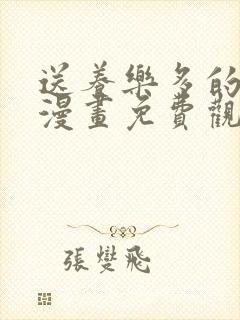 送養樂多的
漫畫免費觀
張燮飛